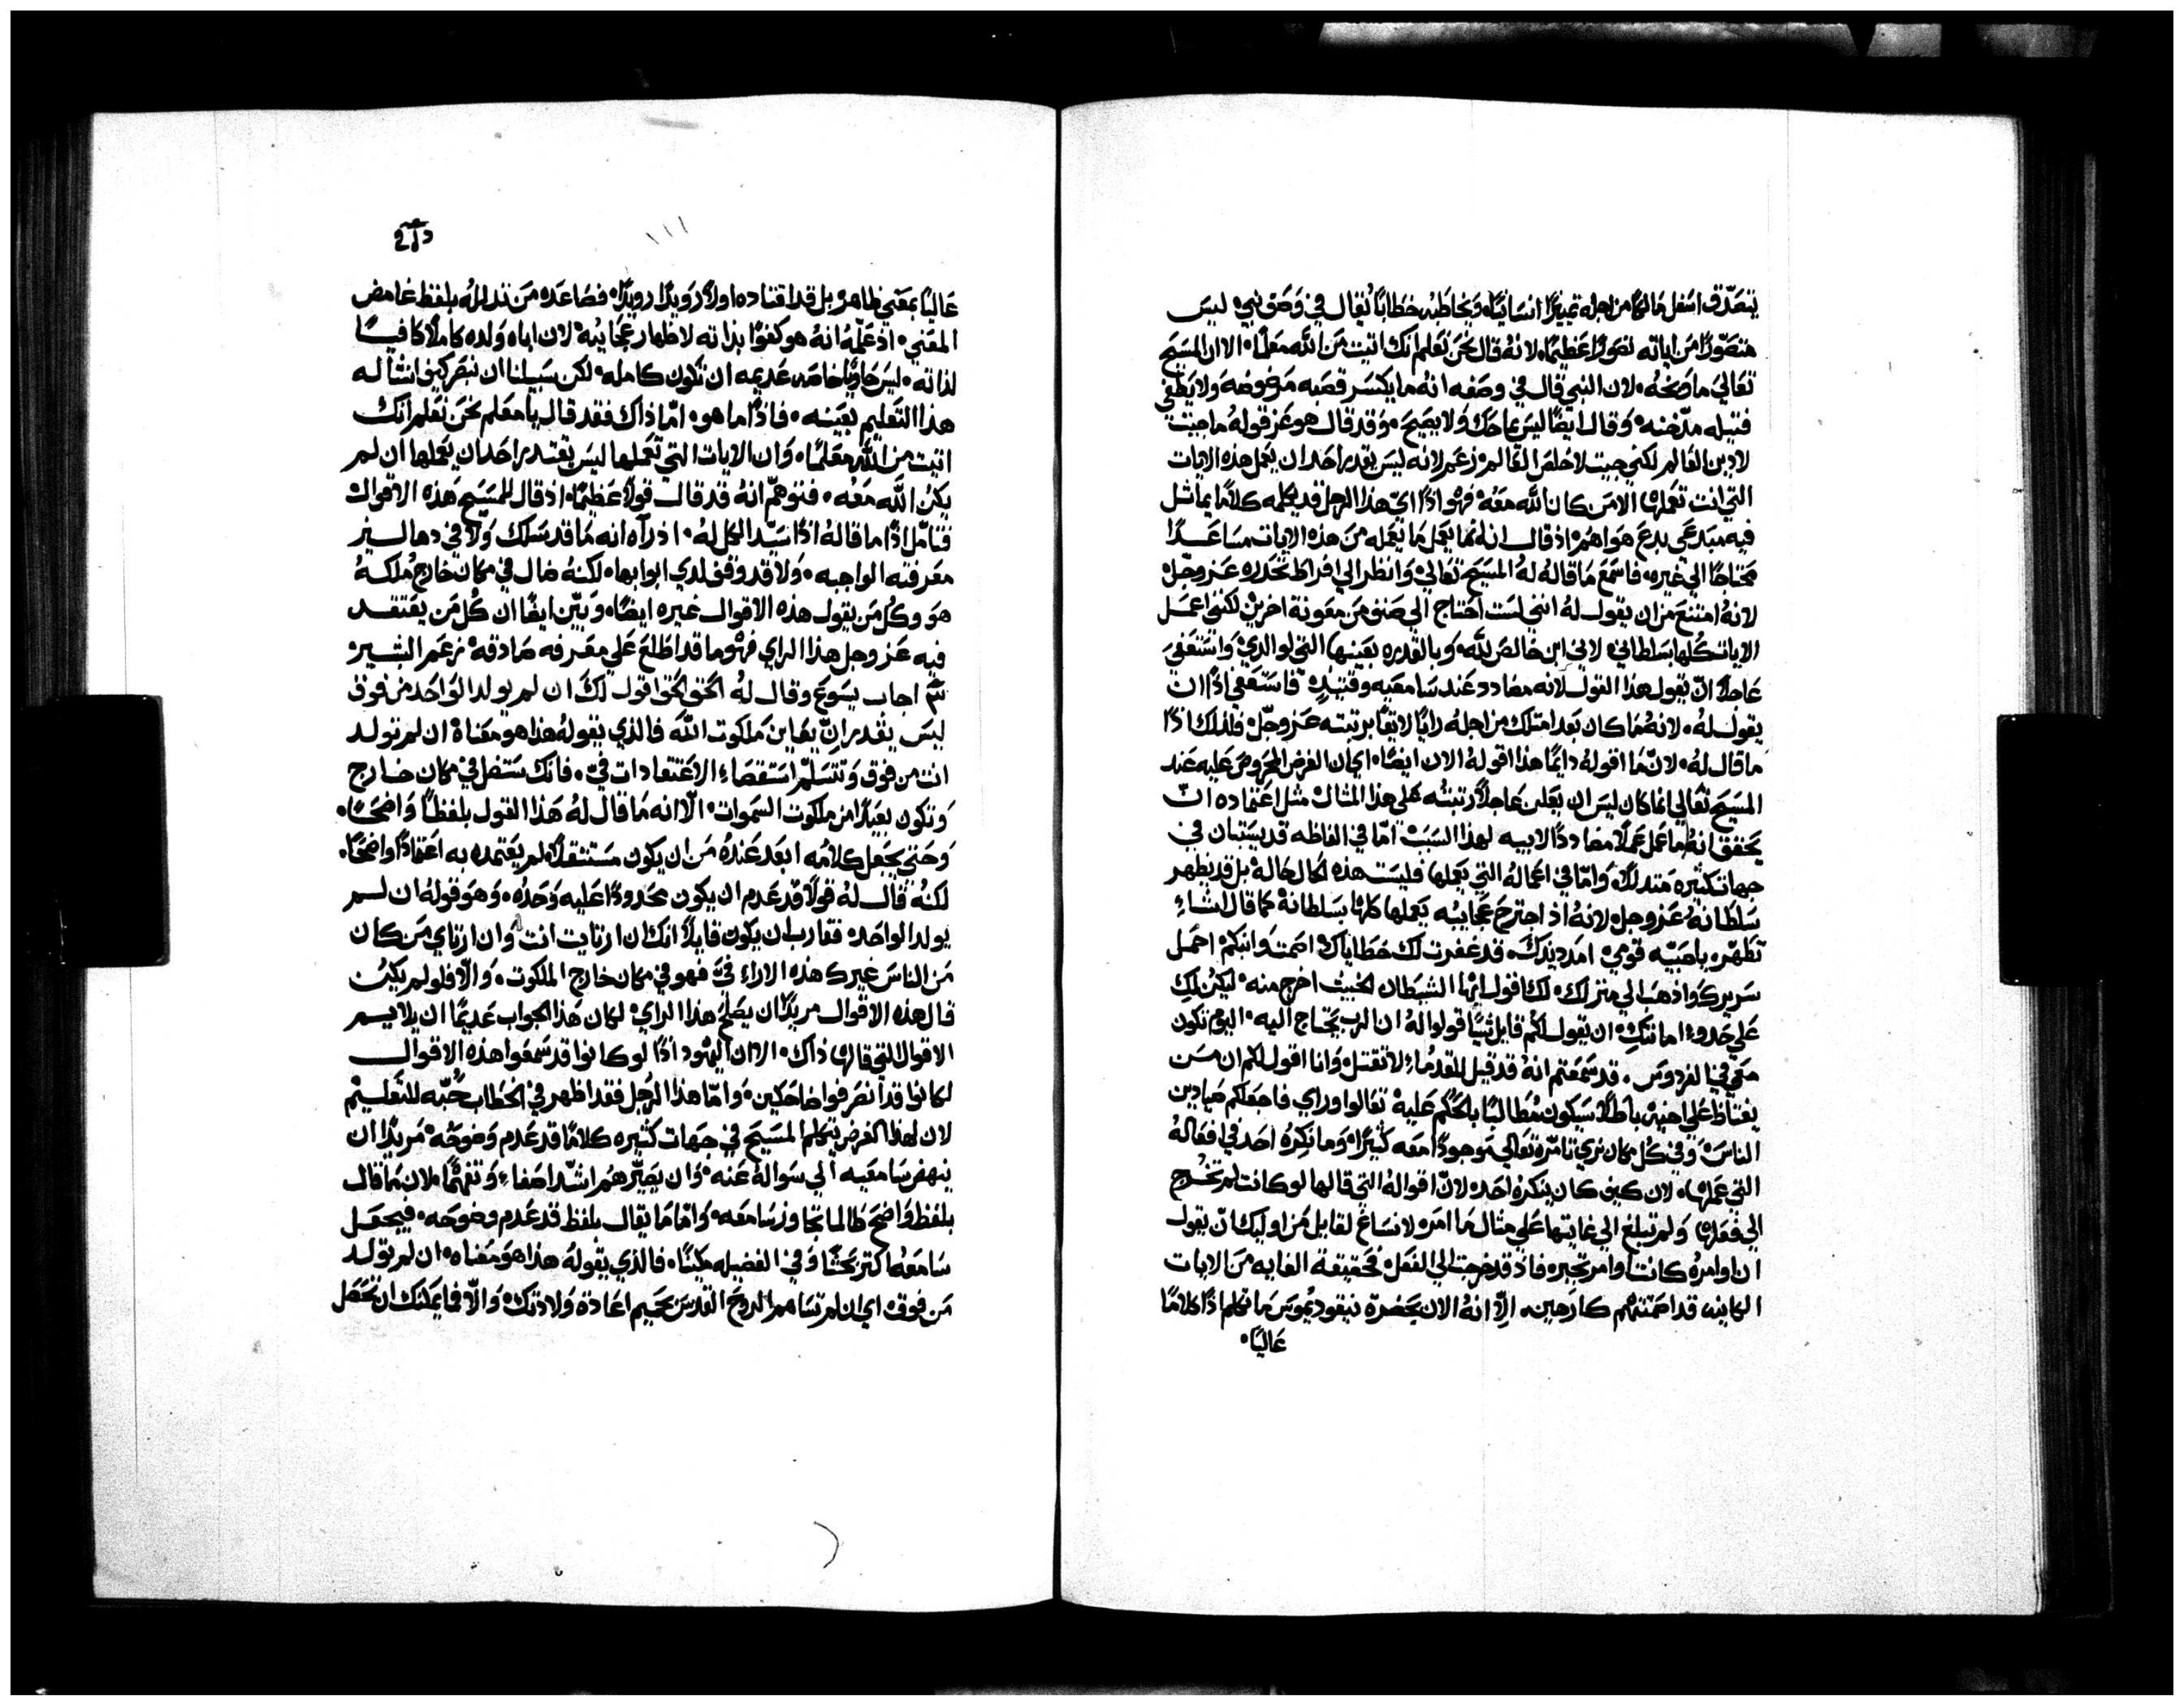 يتصدّق اسفل مالكًا من اجله تمييزًا انسانيًا، ويخاطبه خطابًا يُقال في وصف نبي، ليس
متصوّرًا من اياته تصورًا عظيمًا، لانه قال نحن نعلم انك اتيت من الله معلمًا، الا ان المسيح
تعالي ما وبخه، لان النبي قال في وصفه انه ما يكسر قصبه مرضوضه ولا يطفي
فتيله مدّخنه، وقال ايضًا ليس يماحك ولا يصيح، وقد قال هو عز قوله ما جيت
لادين العالم لكني جيت لاخلص العالم، زعم لانه ليس يقدر احد ان يعمل هذه الايات
التي انت تعملها الا من كان الله معه، فهو اذًا اي هذا الرجل قد يكلمه كلامًا يماثل
فيه مبتدعي بدع هواهم، اذ قال انه انما يعمل ما يعمله من هذه الايات مساعدًا
محتاجًا الي غيره، فاسمع ما قاله له المسيح تعالي، وانظر الي افراط تحدره عز وجل
لانه امتنع من ان يقول له انني لست احتاج الي صنف من معونة اخرين لكنني اعمل
الايات كلها بسلطاني، لاني ابن خالص لله، وبالقدره بعينها التي لوالدي، واستعفي
عاجلاً ان يقول هذا القول لانه مضادد عند سامعيه وقتيذٍ، فاستعفي اذًا ان
يقول له، لانه ما كان بعد امتلك من اجله رايًا لايقًا برتبته عز وجل، فلذلك اذًا
ما قال له، لان ما اقوله دايمًا هذا اقوله الان ايضًا، اي ان الغرض المحروص عليه عند
المسيح تعالي انما كان ليس ان يعلن عاجلاً رتبته علي هذا المثال مثل اعتماده ان
يحقق انه ما عمل عملاً مضاددًا لابيه لهذا السبب، امّا في الفاظه قد يستبان في
جهات كثيره متدللاً، وامّا في اعماله التي يعملها فليست هذه الحال حاله بل قد يظهر
سلطانه عز وجل، لانه اذ اجترح عجايبه يعملها كلها بسلطانه، كما قال اشاء
تطهّر، يا صبيّه قومي، امدد يدك، قد غفرت لك خطاياك، اصمت وانبكم، احمل
سريرك واذهب الي منزلك، لك اقول ايها الشيطان الخبيث اخرج منه، ليكن لكِ
علي حدو امانتكِ، ان يقول لكم قايل شيًا قولوا له ان الرب يحتاج اليه، اليوم تكون
معي في الفردوس، قد سمعتم انه قد قيل للقدماء لا تقتل، وانا اقول لكم ان من
يغتاظ علي اخيه باطلاً سيكون مُطالبًا بالحكم عليه، تعالوا وراي فاجعلكم صيادين
الناس، وفي كل مكان نري تامّره تعالي موجودًا معه كثيرًا، وما نكره احد في افعاله
التي عملها، لان كيف كان ينكره احد، لانّ اقواله التي قالها لو كانت لم تخرج
الي فعلها ولم تبلغ الي غايتها علي مثال ما امر، لانساغ لقايل من اوليك ان يقول
ان اوامره كانت اوامر تجبر، فاذ قد خرجت الي الفعل، فحقيقة الغايه من الايات
الكاينه قد اصمتتهم كارهين، الا انه الان بحضرة نيقوديموس ما تكلم اذًا كلامًا
عاليًا،
١١١
عاليًا بمعني ظاهر، بل قد اقتاده اولاً رويدًا رويدًا، فصاعده من تذلله بلفظ غامض
المعني، اذ علّمه انه هو كفوًا بذاته لاظهار عجايبه، لان اباه ولده كاملاً كافيًا
لذاته، ليس حاويًا خاصه عديمه ان تكون كامله، لكن سبيلنا ان نبصر كيف انشا له
هذا التعليم بعينه، فاذًا ما هو، امّا ذاك فقد قال يا معلم نحن نعلم انك
اتيت من الله معلمًا، وان الايات التي تعملها ليس يقتدر احد ان يعملها ان لم
يكن الله معه، فتوهّم انه قد قال قولاً عظيمًا، اذ قال للمسيح هذه الاقوال
فتامّل اذًا ما قاله اذًا سيّد الكل له، اذ رآه انه ما قد سلك ولا في دهاليز
معرفته الواجبه، ولا قد وقف لدي ابوابها، لكنه ضال في مكان خارج ملكه
هو وكل من يقول هذه الاقوال غيره ايضًا، وبيّن ايضًا ان كل من يعتقد
فيه عز وجل هذا الراي فهو ما قد اطلع علي معرفه صادقة، زعم البشير
ثم اجاب يسوع وقال له الحق الحق اقول لك ان لم يولد الواحد من فوق
ليس يقدر ان يعاين ملكوت الله، فالذي يقوله هذا هو معناه، ان لم تولد
انت من فوق وتتسلّم استقصاء الاعتقادات فيّ، فانك ستضل في مكان خارج
وتكون بعيدًا من ملكوت السموات، الّا انه ما قال له هذا القول بلفظًا واضحًا،
وحتي يجعل كلامه ابعد عنده من ان يكون مستثقلاً، لم يعتمده به اعتمادًا واضحًا،
لكنه قال له قولاً قد عدم ان يكون محدودًا عليه وحده، وهو قوله ان لم
يولد الواحد، فقارب ان يكون قايلاً انك ان ارتايت انت، وان ارتاي من كان
من الناس غيرك هذه الاراء فيّ، فهو في مكان خارج الملكوت، والّا فلو لم يكن
قال هذه الاقوال مريدًا ان يصلح هذا الراي، لكان هذا الجواب عديمًا ان يلايم
الاقوال التي قالها ذاك، الا ان اليهود اذًا لو كانوا قد سمعوا هذه الاقوال
لكانوا قد انصرفوا ضاحكين، وامّا هذا الرجل فقد اظهر في الخطاب حُبّه للتعليم
لان لهذا الغرض يتكلم المسيح في جهات كثيره كلامًا قد عدم وضوحه، مريدًا ان
ينهض سامعيه الي سواله عنه، وان يصيّرهم اشدّ اصغاء وتفهّمًا، لان ما قال
بلفظ واضح طالما تجاوز سامعه، وامّا ما يقال بلفظ قد عدم وضوحه، فيجعل
سامعه اكثر بحثًا وفي الفضيله مكينًا، فالذي يقوله هذا هو معناه، ان لم تولد
من فوق، اي ان لم تساهم الروح القدس بحميم اعادة ولادتك، والّا فما يمكنك ان تحصل